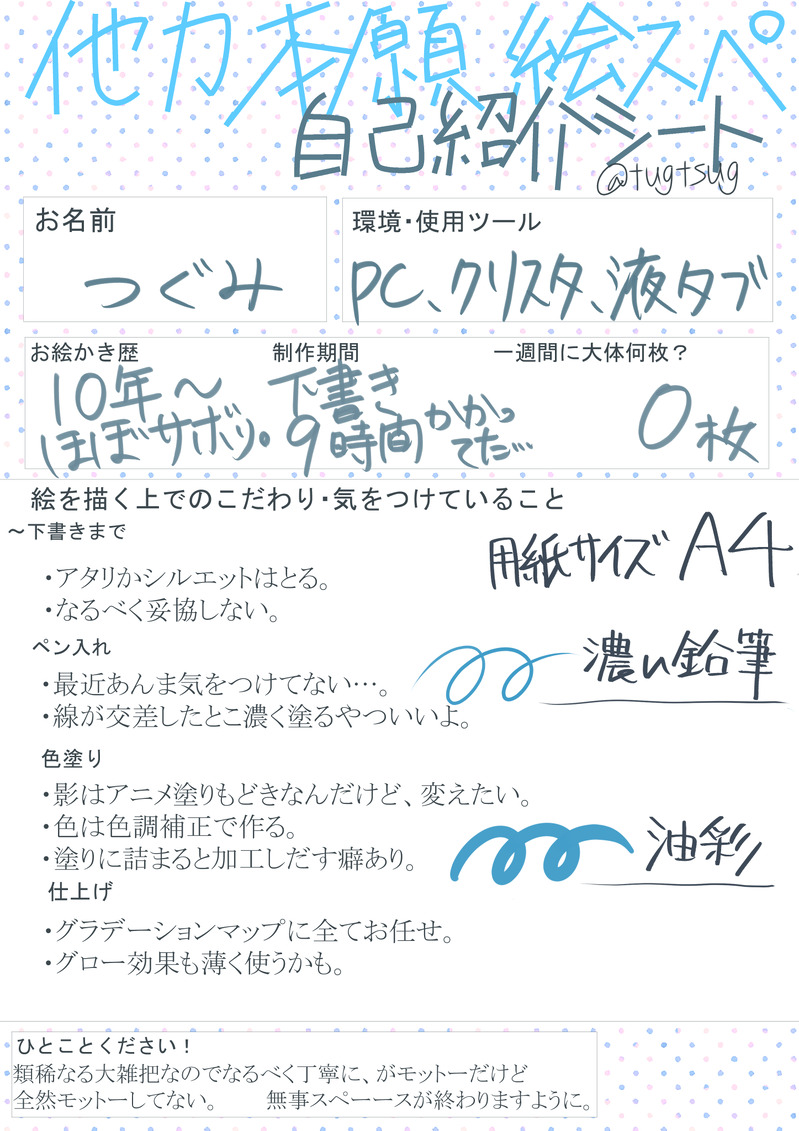 他力本願 絵スペ
自己紹介シート
@tugtsug
お名前
つぐみ
環境・使用ツール
PC、クリスタ、液タブ
お絵かき歴
10年～
ほぼサボり。
制作期間
下書き
9時間かかっ
てた…
一週間に大体何枚？
0枚
絵を描く上でのこだわり・気をつけていること
～下書きまで
・アタリかシルエットはとる。
・なるべく妥協しない。
用紙サイズ A4
ペン入れ
・最近あんま気をつけてない…。
・線が交差したとこ濃く塗るやついいよ。
濃い鉛筆
色塗り
・影はアニメ塗りもどきなんだけど、変えたい。
・色は色調補正で作る。
・塗りに詰まると加工しだす癖あり。
油彩
仕上げ
・グラデーションマップに全てお任せ。
・グロー効果も薄く使うかも。
ひとことください！
類稀なる大雑把なのでなるべく丁寧に、がモットーだけど
全然モットーしてない。　　無事スペーースが終わりますように。